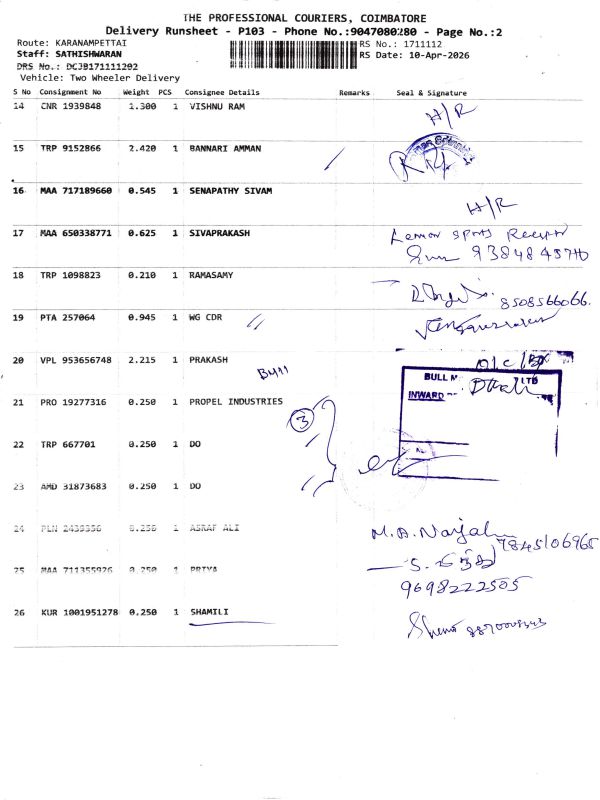 THE PROFESSIONAL COURIERS, COIMBATORE
Delivery Runsheet - P103 - Phone No.:9047080280 - Page No.:2
Route: KARANAMPETTAI
RS No.: 1711112
Staff: SATHISHWARAN
RS Date: 10-Apr-2026
DRS No.: DCJB171111202
Vehicle: Two Wheeler Delivery
S No Consignment No Weight PCS Consignee Details Remarks Seal & Signature
14 CNR 1939848 1.300 1 VISHNU RAM H/R
15 TRP 9152866 2.420 1 BANNARI AMMAN
16 MAA 717189660 0.545 1 SENAPATHY SIVAM H/R
17 MAA 650338771 0.625 1 SIVAPRAKASH Lemon Sports Receptor
9384845740
18 TRP 1098823 0.210 1 RAMASAMY 8508566066.
19 PTA 257064 0.945 1 WG CDR
20 VPL 953656748 2.215 1 PRAKASH
Bull
BULL M LTD
INWARD
21 PRO 19277316 0.250 1 PROPEL INDUSTRIES
3
22 TRP 667701 0.250 1 DO
23 AMD 31873683 0.250 1 DO
24 PLN 2439356 0.250 1 ASRAF ALI 9845106965
25 MAA 711355926 0.250 1 PRIYA
9698222505
26 KUR 1001951278 0.250 1 SHAMILI